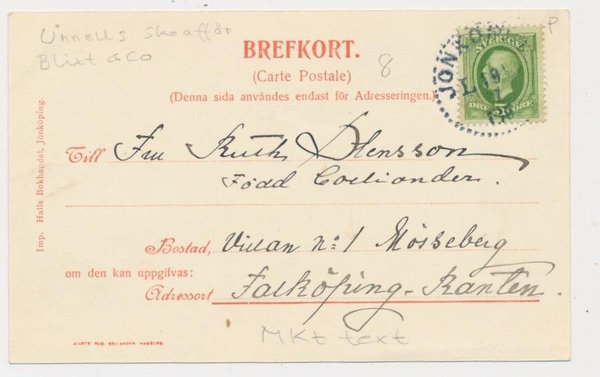 Unnells Skoaffär
Blixt & Co
P
BREFKORT.
(Carte Postale)
8
(Denna sida användes endast för Adresseringen.)
JÖNKÖ
SVERIGE
ÖRE 5 ÖRE
Imp. Halls Bokhandel, Jönköping.
Till Fru Ruth Stensson
Född Coeliander.
Bostad, Villan Nº 1 Mösseberg
om den kan uppgifvas:
Adressort Falköping-Ranten.
Mkt text
HAMBURG